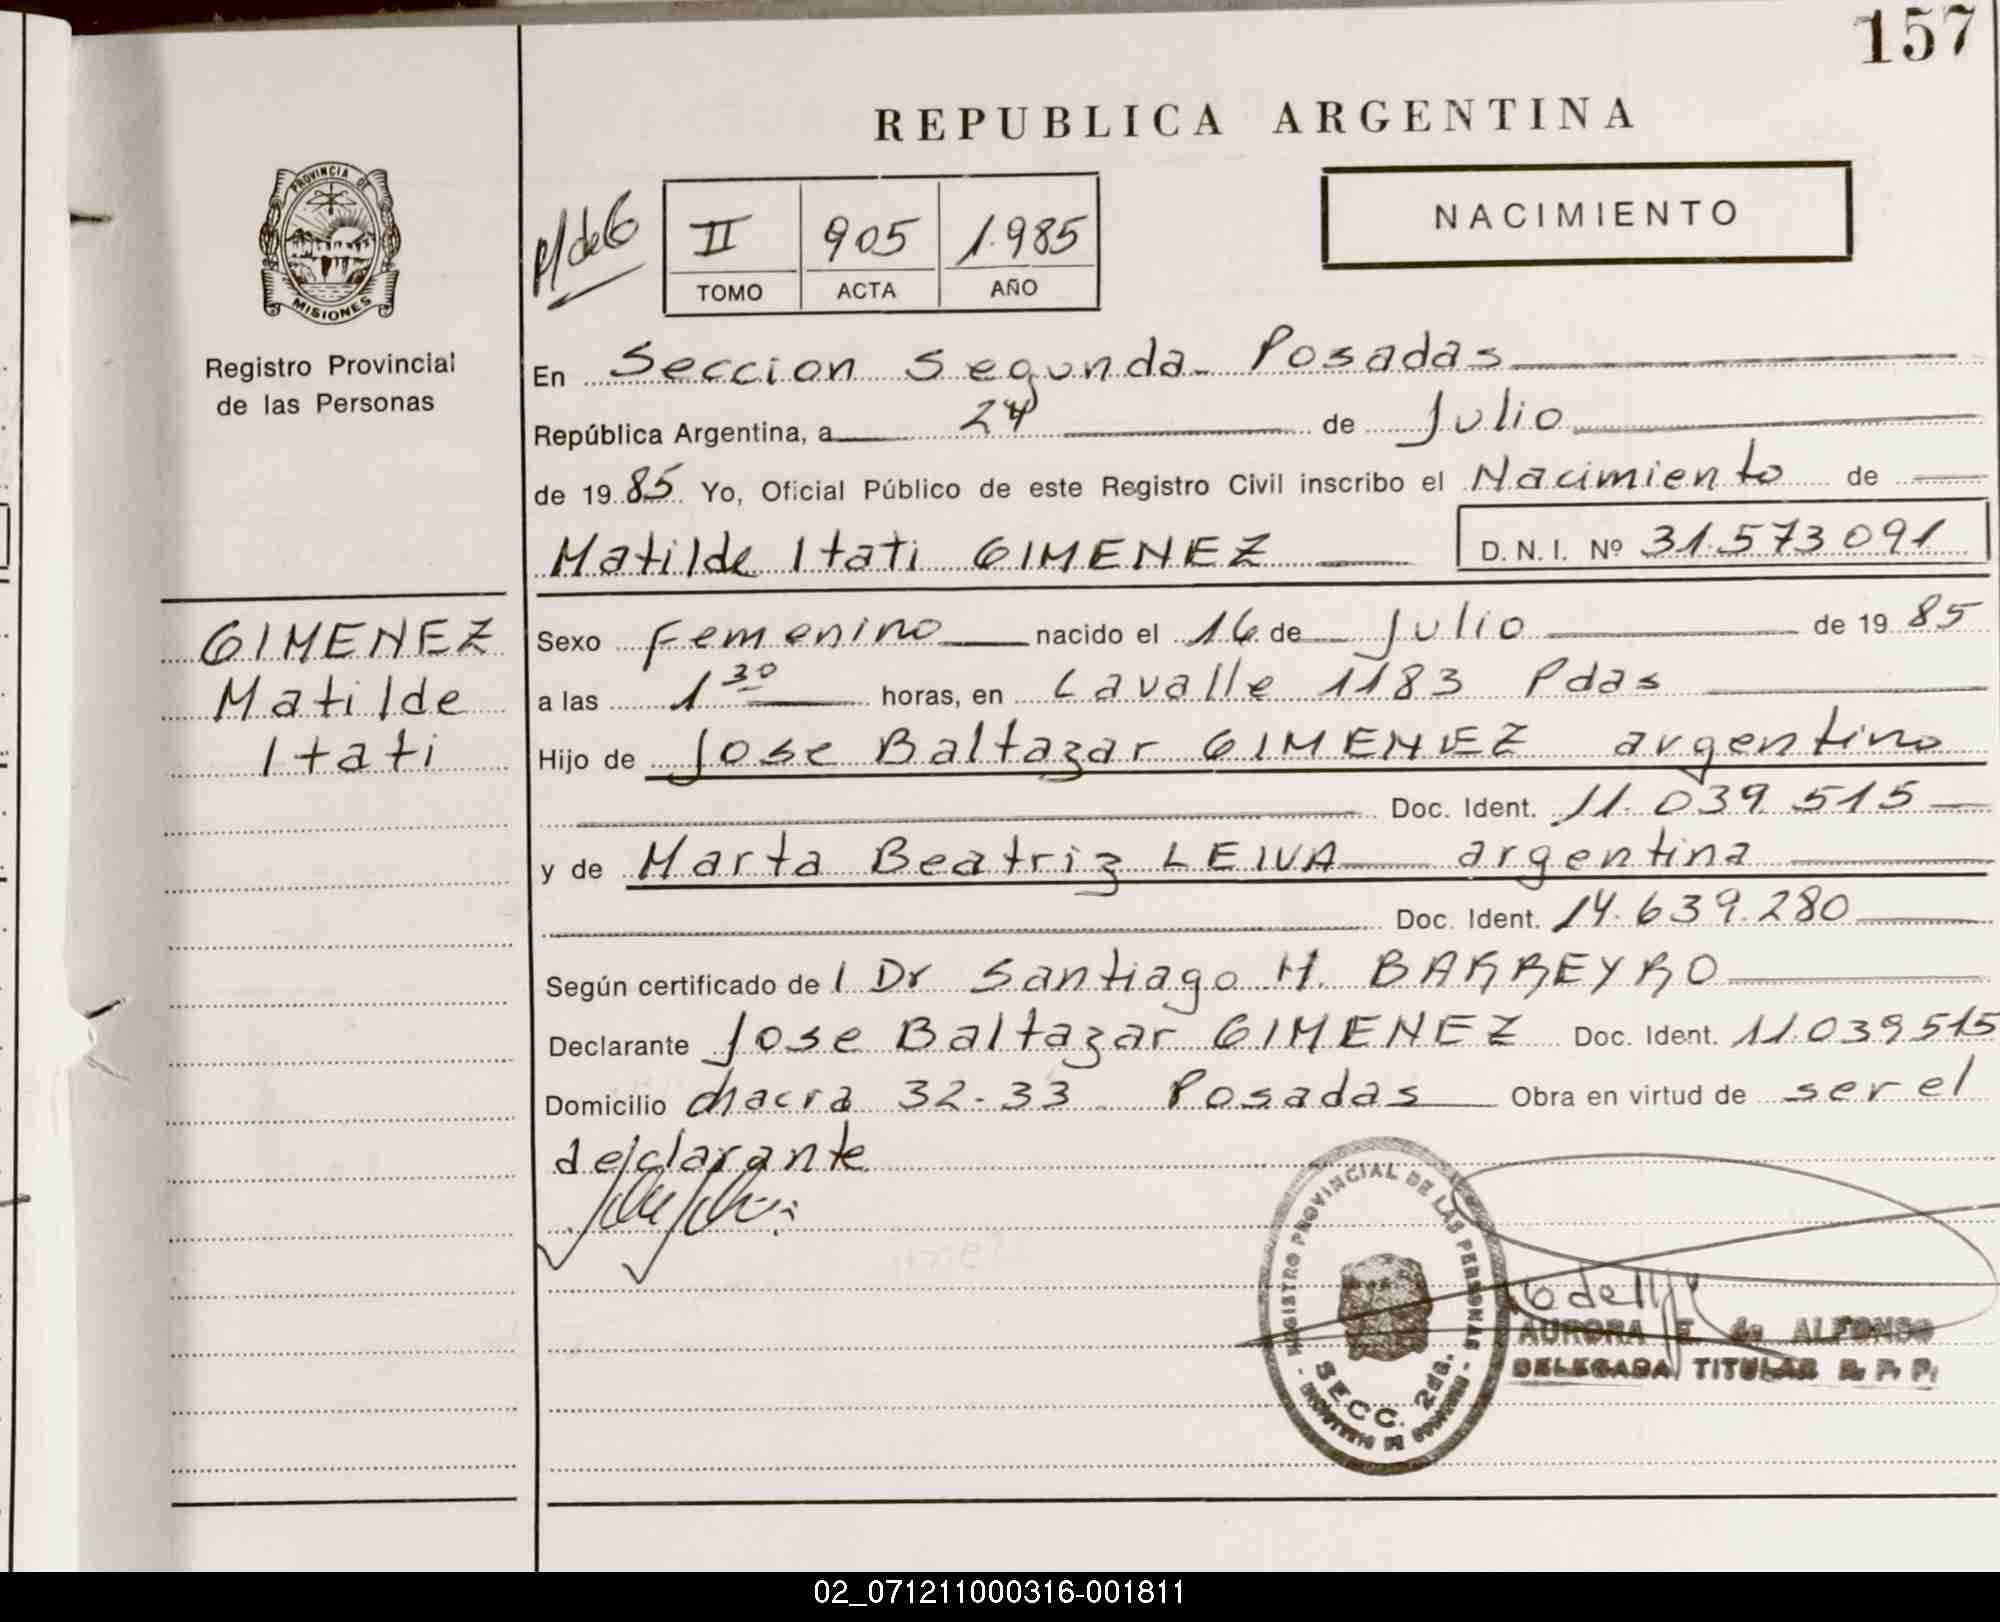 157
REPUBLICA ARGENTINA
PROVINCIA DE
MISIONES
Registro Provincial
de las Personas
II 905 1.985
TOMO ACTA AÑO
NACIMIENTO
En Seccion Segunda Posadas
República Argentina, a 24 de Julio
de 19 85 Yo, Oficial Público de este Registro Civil inscribo el Nacimiento de
Matilde Itati GIMENEZ D.N.I. Nº 31.573.091
GIMENEZ
Matilde
Itati
Sexo Femenino nacido el 16 de Julio de 19 85
a las 1 30 horas, en Lavalle 1183 Pdas
Hijo de Jose Baltazar GIMENEZ argentino
Doc. Ident. 11.039.515
y de Marta Beatriz LEIVA argentina
Doc. Ident. 14.639.280
Según certificado de l Dr Santiago H. BARREYRO
Declarante Jose Baltazar GIMENEZ Doc. Ident. 11.039.515
Domicilio chacra 32-33 Posadas Obra en virtud de ser el
declarante
REGISTRO PROVINCIAL DE LAS PERSONAS
SECC. 2da.
MINISTERIO DE GOBIERNO
AURORA E. de ALFONSO
DELEGADA TITULAR R. P. P.
02_071211000316-001811